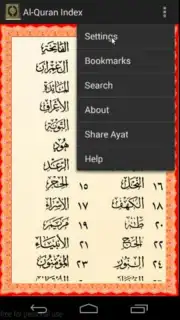 Al-Quran Index
Settings
Bookmarks
Search
About
Share Ayat
Help
الفاتحة
آل عمران
المائدة
الأعراف
التوبة
هود
الرعد
١٦ النحل ١٥ الحجر
١٨ الكهف ١٧ الإسراء
٢٠ طه ١٩ مريم
٢٢ الحج ٢١ الأنبياء
٢٤ النور ٢٣ المؤمنون
free for personal use